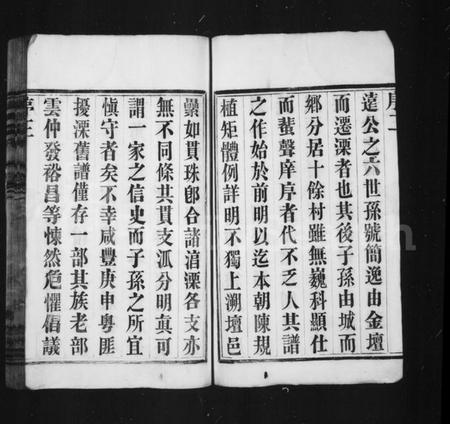 序二
達公之六世孫號簡逸由金壇
而遷溧者也其後子孫由城而
鄉分居十餘村雖無巍科顯仕
而蜚聲庠序者代不乏人其譜
之作始於前明以迄本朝陳規
植矩體例詳明不獨上溯壇邑
纍如貫珠郎合諸湻溧各支亦
無不同條其貫支派分明真可
謂一家之信史而子孫之所宜
慎守者矣不幸咸豐庚申粵匪
擾溧舊譜僅存一部其族老部
雲仲發裕昌等悚然危懼倡議
序三